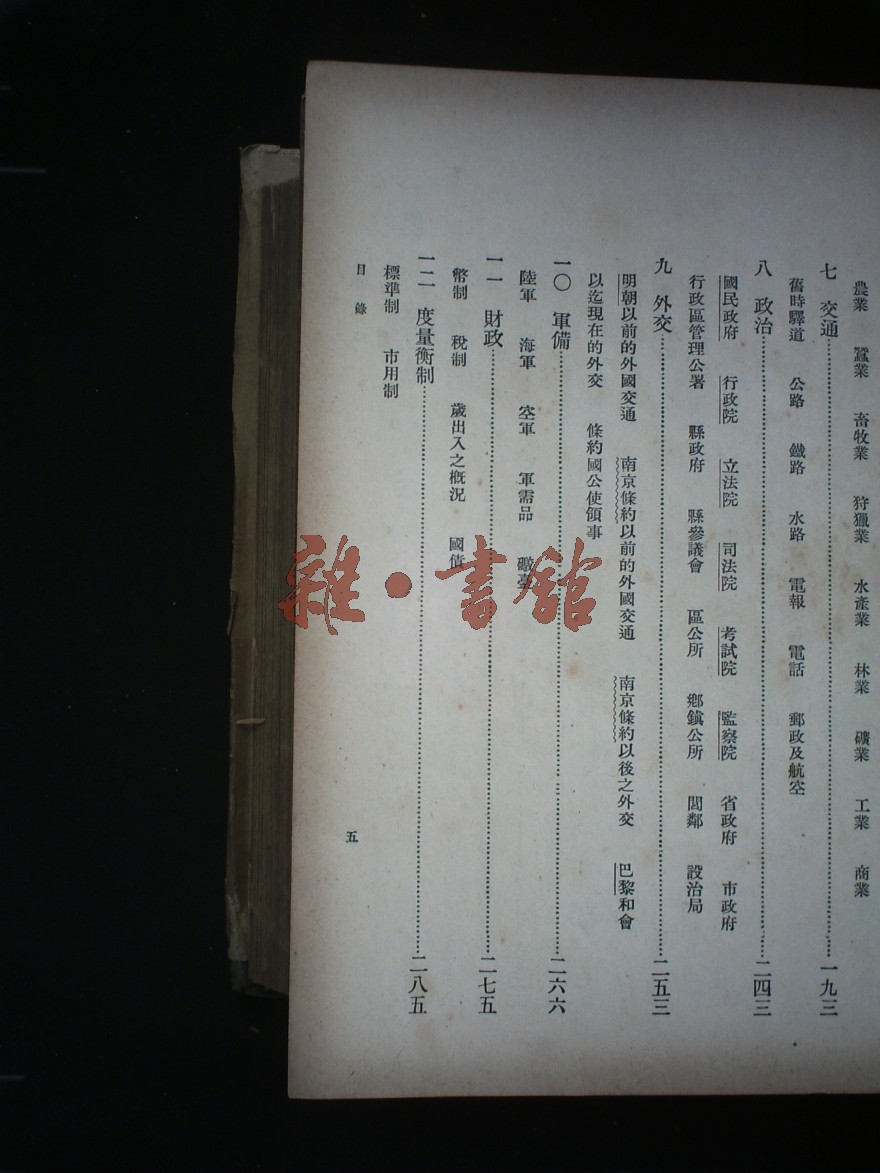 農業 蠶業 畜牧業 狩獵業 水產業 林業 礦業 工業 商業
七 交通……一九三
舊時驛道 公路 鐵路 水路 電報 電話 郵政及航空
八 政治……二四三
國民政府 行政院 立法院 司法院 考試院 監察院 省政府 市政府
行政區管理公署 縣政府 縣參議會 區公所 鄉鎮公所 閭鄰 設治局
九 外交……二五三
明朝以前的外國交通 南京條約以前的外國交通 南京條約以後之外交 巴黎和會
以迄現在的外交 條約國公使領事
一〇 軍備……二六六
陸軍 海軍 空軍 軍需品 礮臺
一一 財政……二七五
幣制 稅制 歲出入之概況 國債
一二 度量衡制……二八五
標準制 市用制
目錄
五
雜·書館